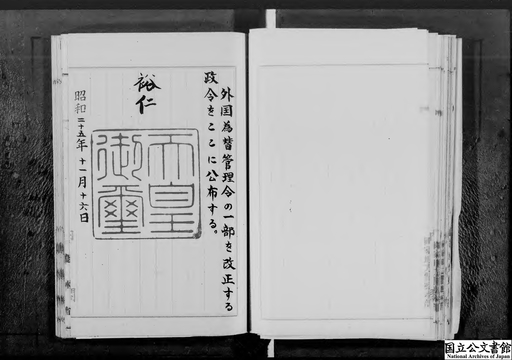 外国為替管理令の一部を改正する
政令をここに公布する。
裕仁
天皇
御璽
昭和二十五年十一月十六日
国立公文書館
National Archives of Japan